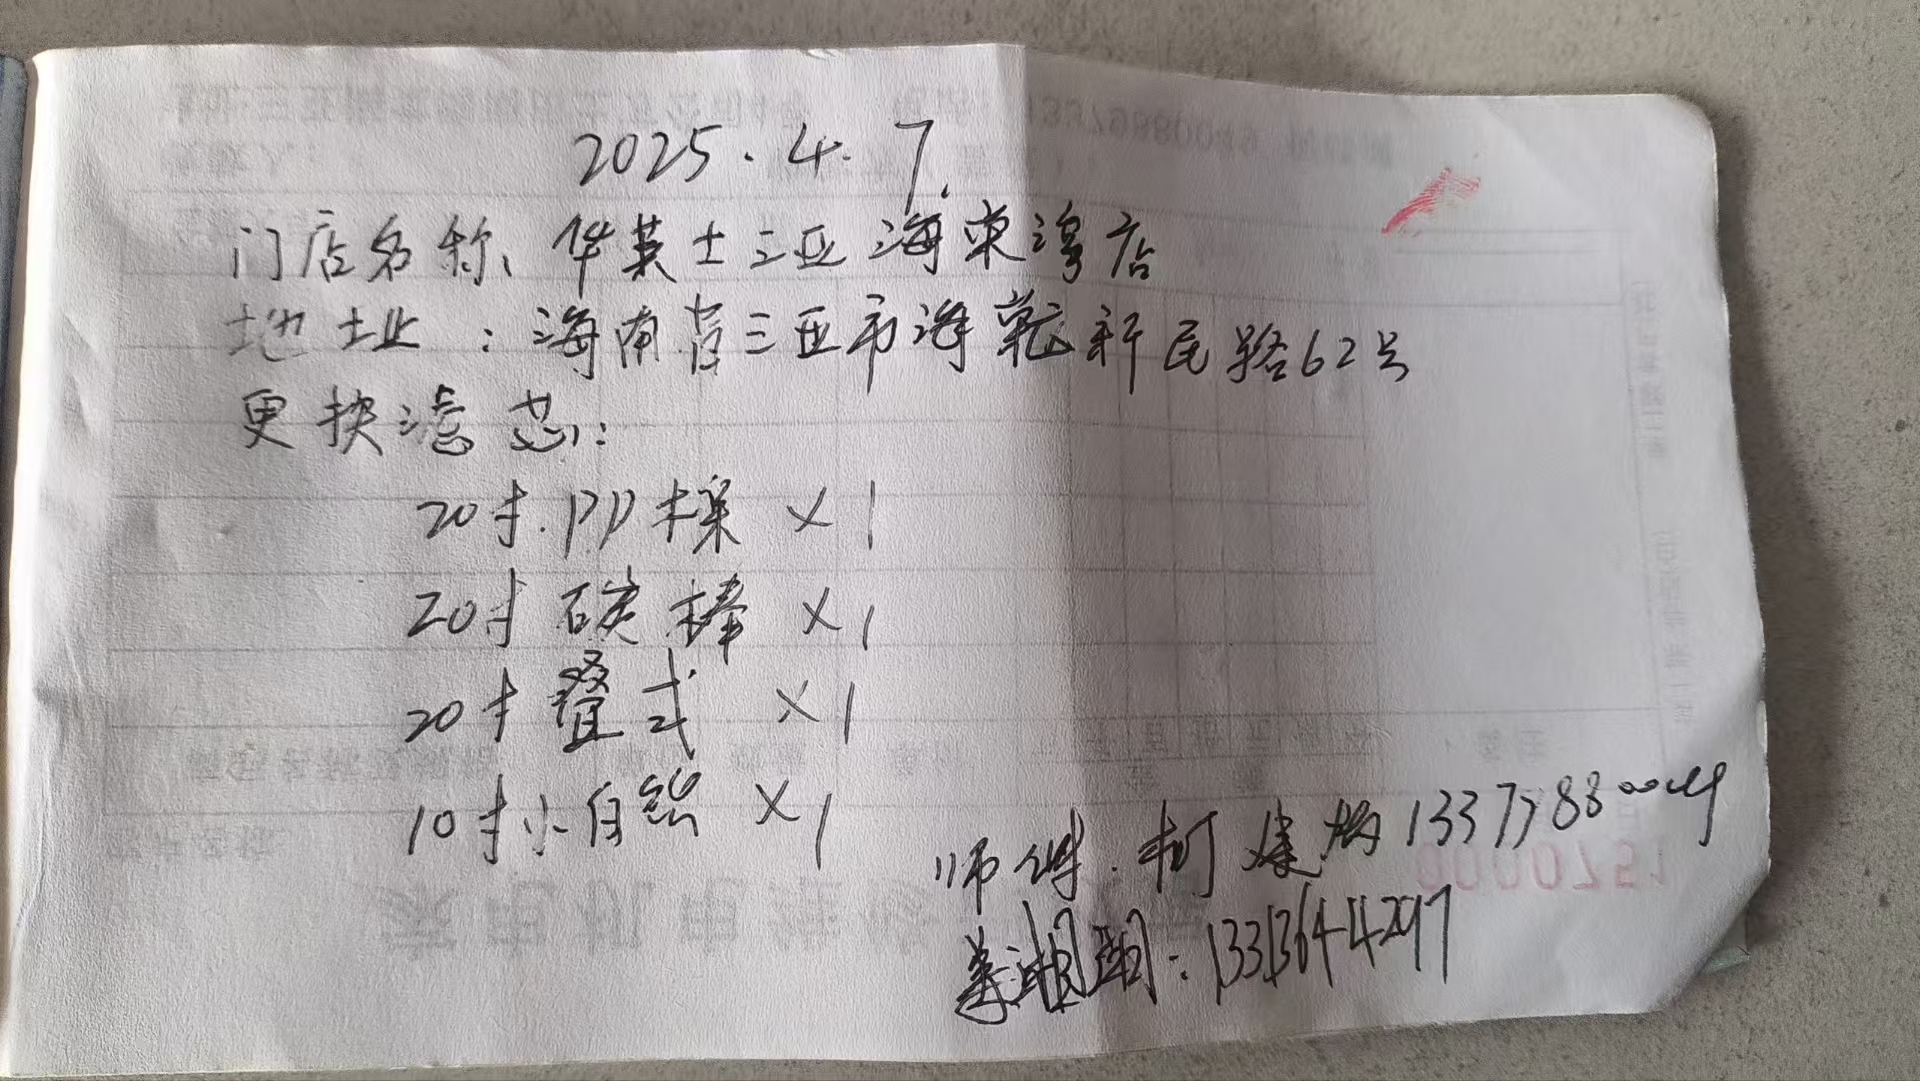 2025.4.7.
门店名称、华英士三亚海棠湾店
地址:海南省三亚市海棠区新民路62号
更换滤芯:
20寸.PP棉 x1
20寸碳棒 x1
20寸叠式 x1
10寸小白 x1
师傅.柯建 13379880049
湘 :13313644297
00000751